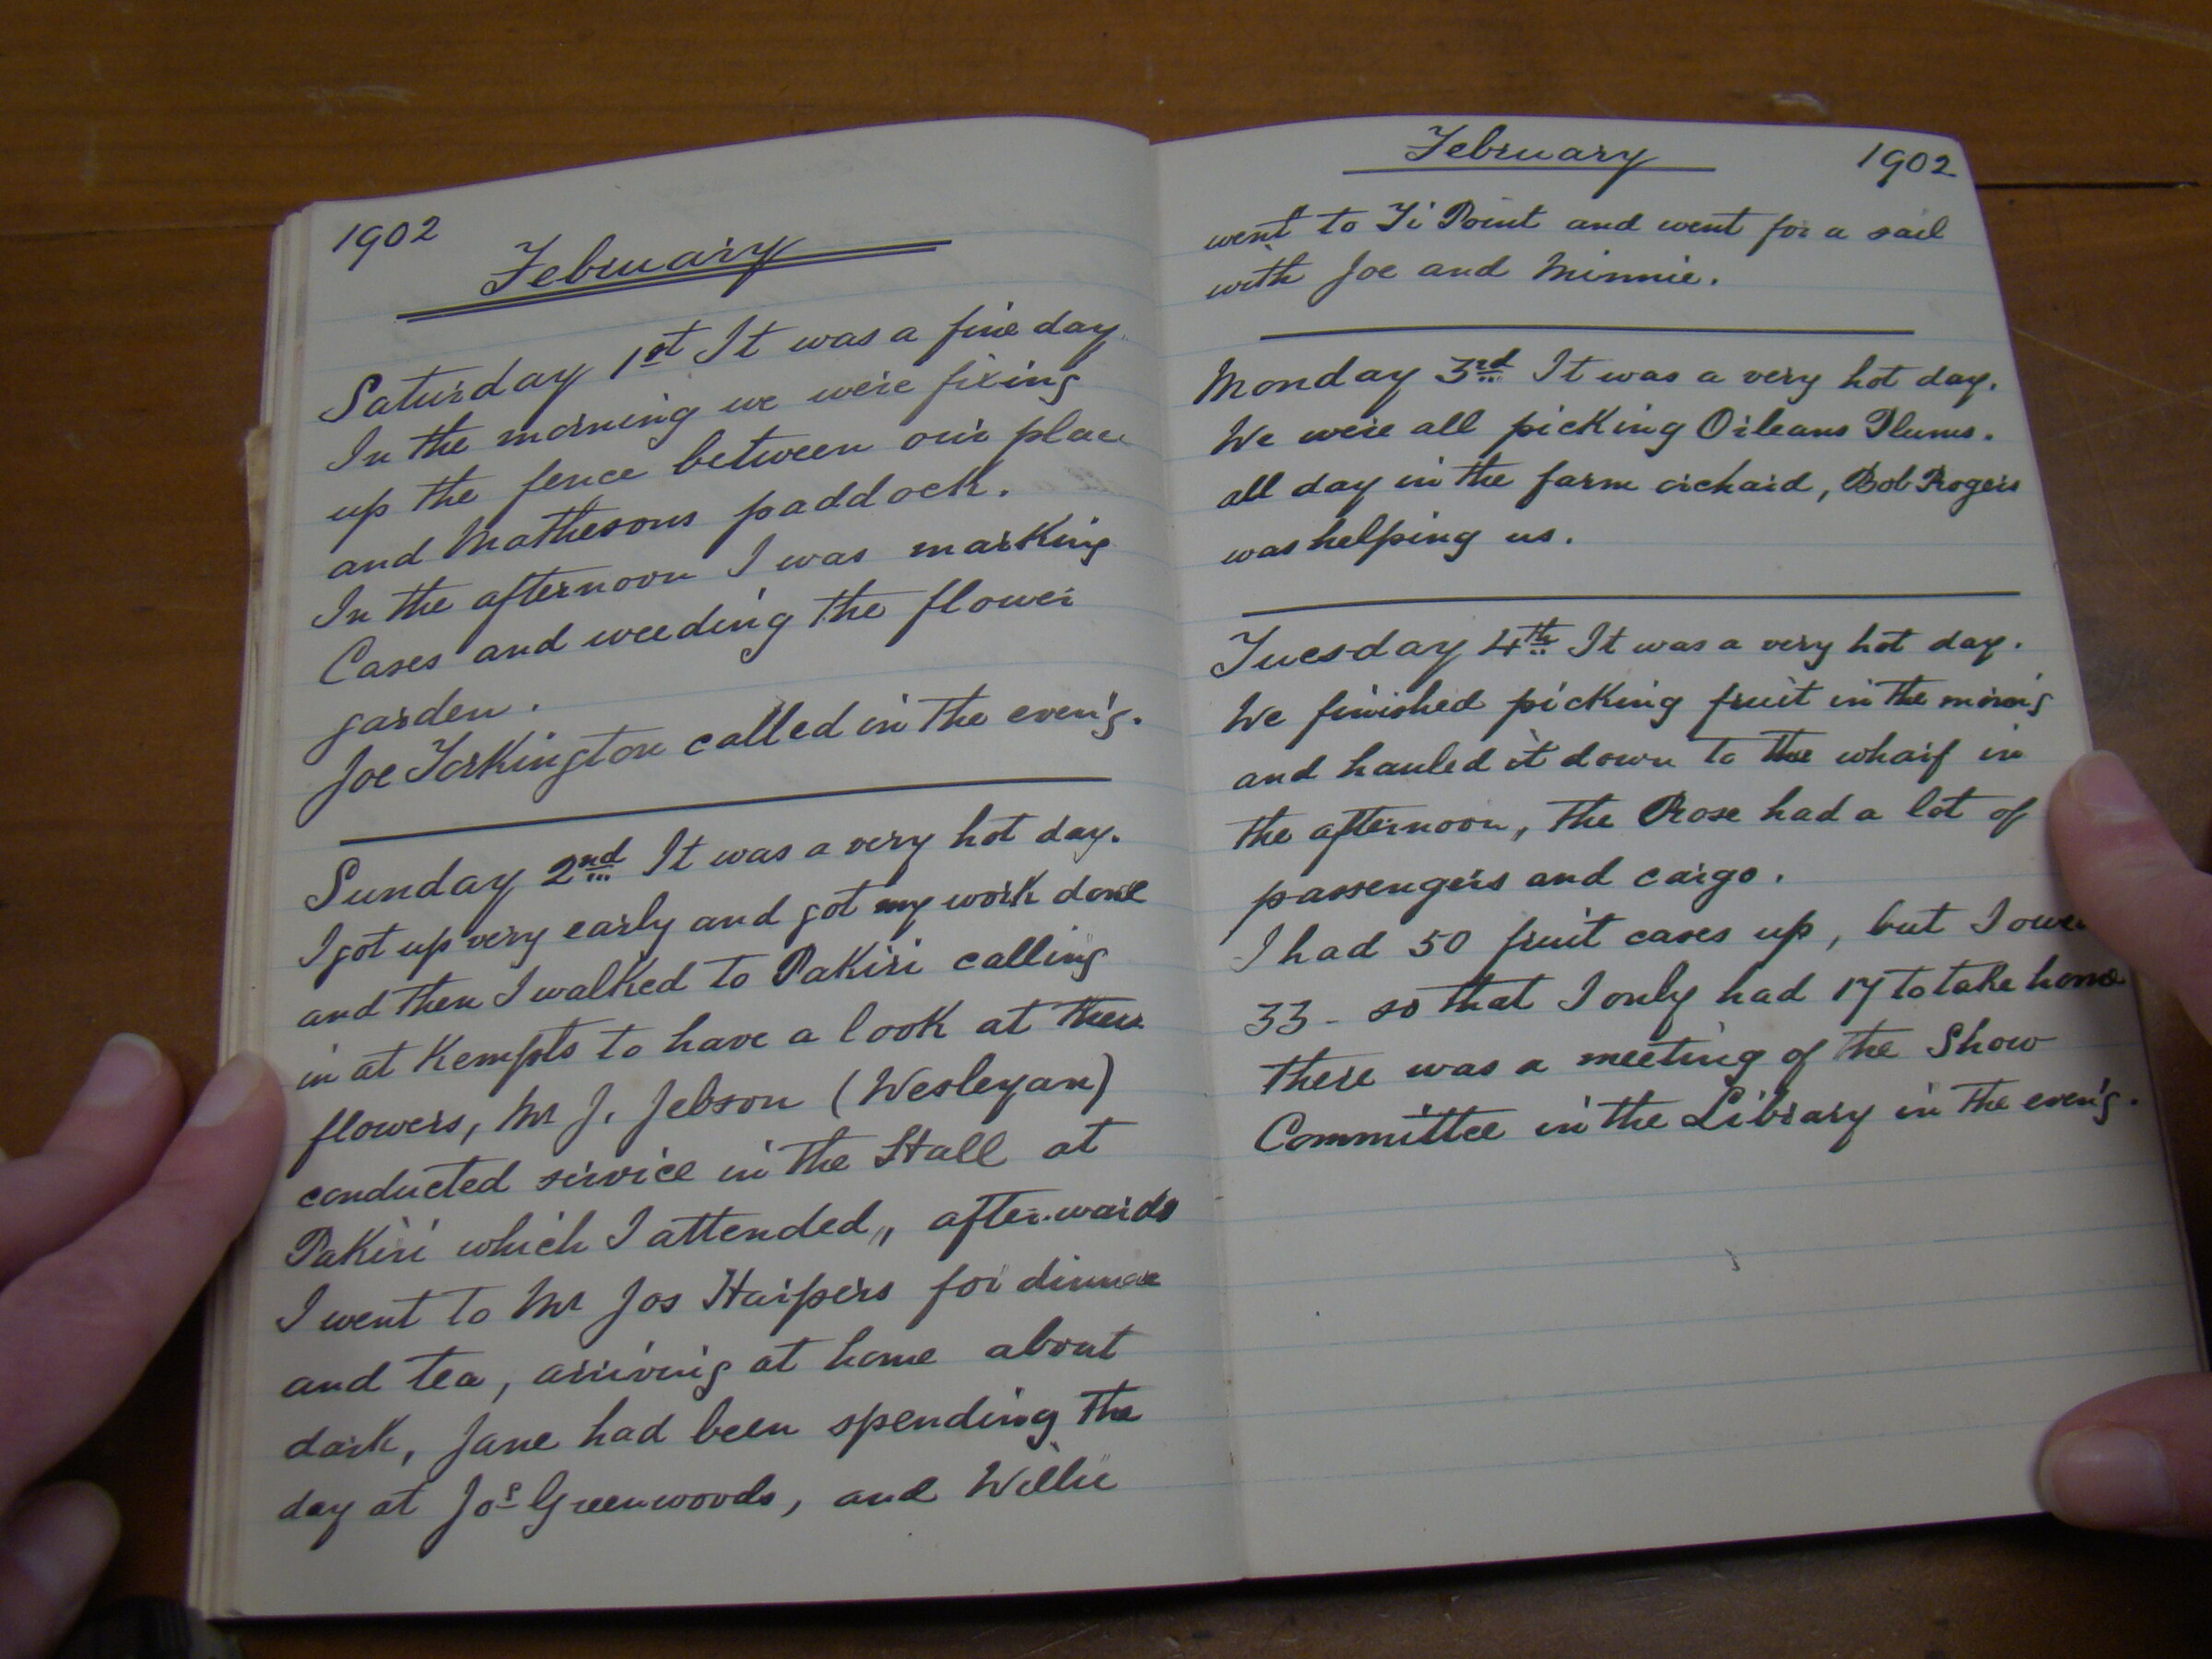 1902
February
Saturday 1st It was a fine day.
In the morning we were fixing
up the fence between our place
and Mathesons paddock.
In the afternoon I was marking
Cases and weeding the flower
garden.
Joe Torkington called in the even'g.
Sunday 2nd It was a very hot day.
I got up very early and got my work done
and then I walked to Pakiri calling
in at Kempts to have a look at their
flowers, Mr J. Jebson (Wesleyan)
conducted service in the Hall at
Pakiri which I attended,, afterwards
I went to Mr Jos Harpers for dinner
and tea, arriving at home about
dark, Jane had been spending the
day at Jos Greenwoods, and Willie
February 1902
went to Ti Point and went for a sail
with Joe and Minnie.
Monday 3rd It was a very hot day.
We were all picking Orleans Plums.
all day in the farm orchard, Bob Rogers
was helping us.
Tuesday 4th It was a very hot day.
We finished picking fruit in the morn'g
and hauled it down to the wharf in
the afternoon, the Rose had a lot of
passengers and cargo.
I had 50 fruit cases up, but I owed
33 - so that I only had 17 to take home
there was a meeting of the Show
Committee in the Library in the even'g.